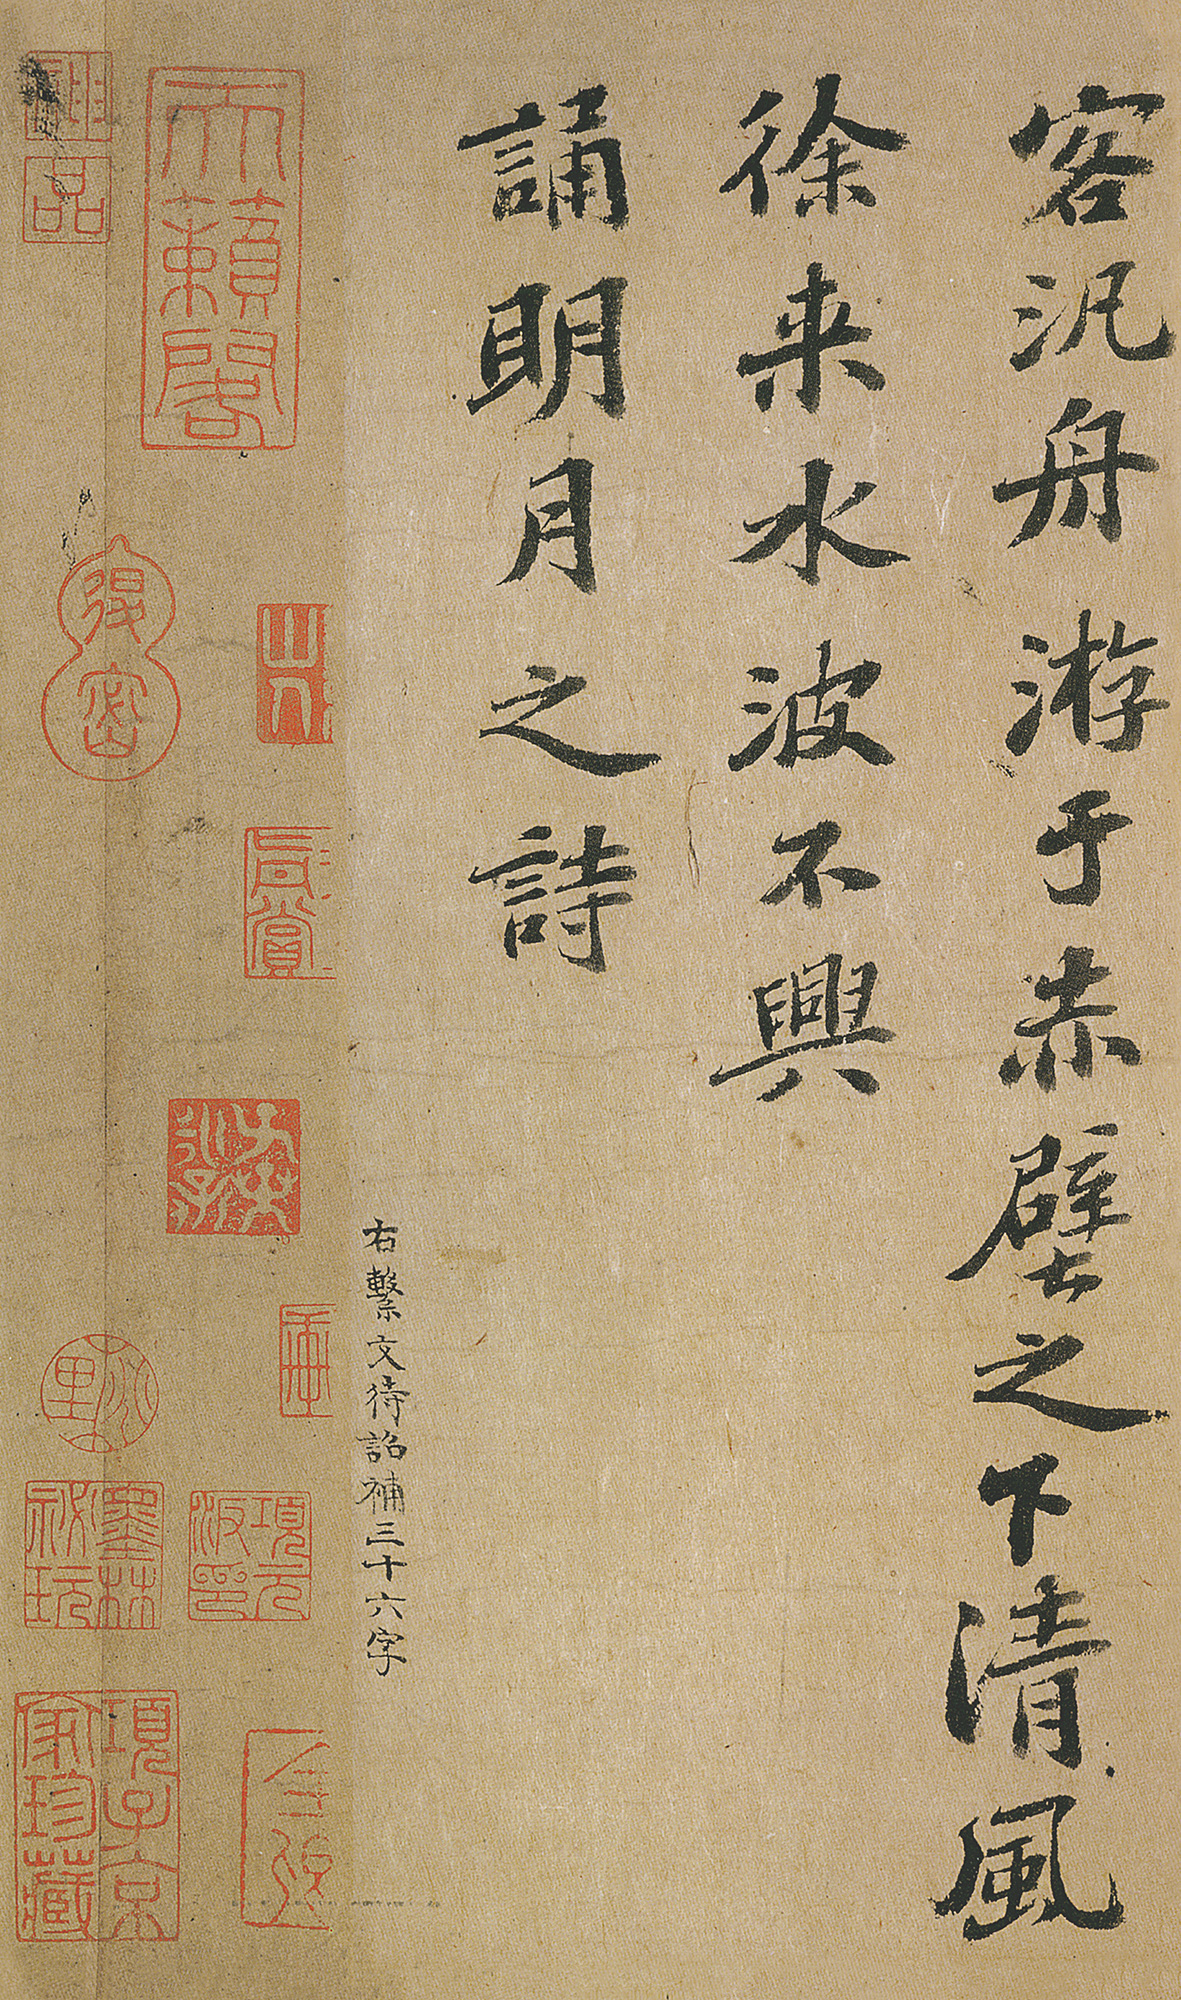 客汎舟游于赤壁之下清風
徐来水波不興
誦明月之詩
右繫文待詔補三十六字
天籟閣
項元汴印
墨林祕玩
項子京家珍藏